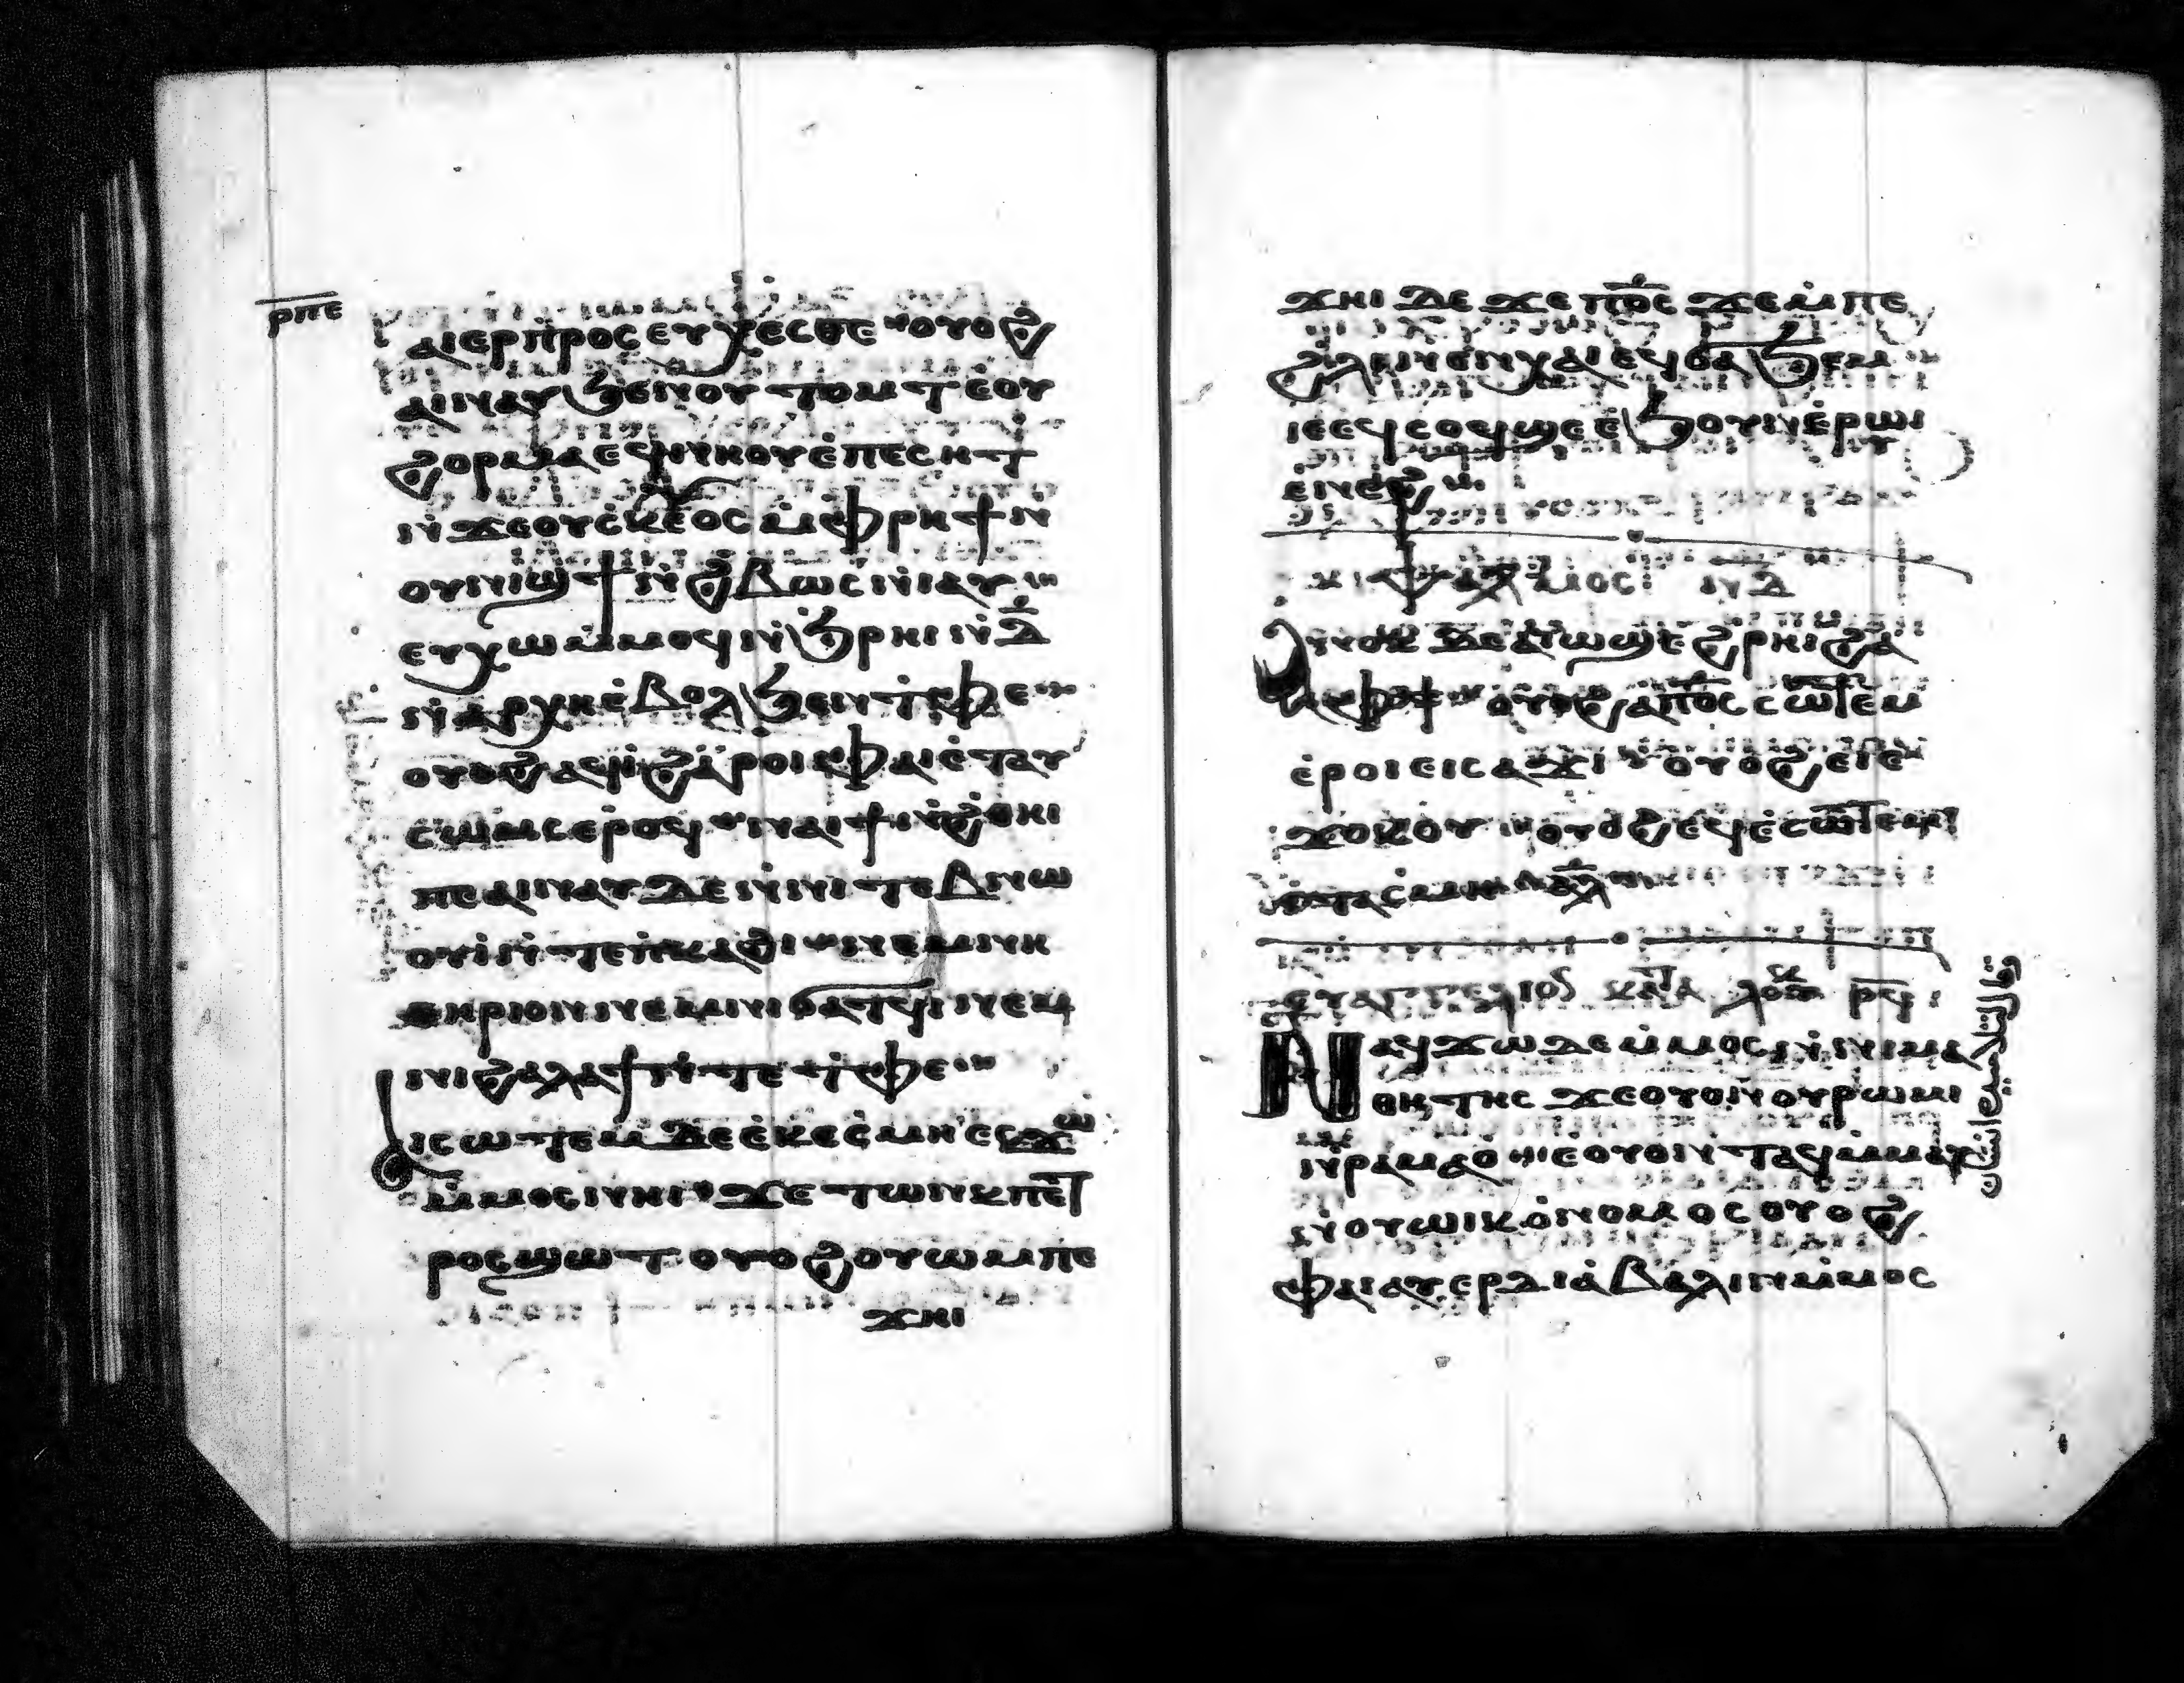 ⲣⲡⲉ
ⲁⲓⲉⲣⲡ̀ⲣⲟⲥⲉⲩⲭⲉⲥⲑⲉ ⲟⲩⲟϩ
ⲁⲓⲛⲁⲩϧⲉⲛⲟⲩⲧⲟⲙⲧⲉⲟⲩ
ϩⲟⲣⲁⲙⲁⲉϥⲛⲏⲟⲩⲉ̀ⲡⲉⲥⲏⲧ
ⲛ̀ϫⲉⲟⲩⲥⲕⲉⲟⲥⲙ̀ⲫⲣⲏϯⲛ̀
ⲟⲩⲛⲓϣϯⲛ̀ϩⲃⲱⲥⲛⲓⲁⲩ
ⲉⲩⲭⲱⲙ̀ⲙⲟϥⲛ̀ϧⲣⲏⲓⲛ̀ⲇ̅
ⲛ̀ⲁⲣⲭⲏⲉ̀ⲃⲟⲗϧⲉⲛⲧ̀ⲫⲉ
ⲟⲩⲟϩⲁϥⲓ̀ϩⲁⲣⲟⲓⲫⲁⲓⲉ̀ⲧⲁⲩ
ⲥⲱⲙⲥⲉⲣⲟϥ ⲛⲁⲓϯⲛ̀ϩⲑⲏⲓ
ⲡⲉⲁⲓⲛⲁⲩⲇⲉⲛ̀ⲛⲓⲧⲉⲃⲛⲱ
ⲟⲩⲓ̀ⲛ̀ⲧⲉⲡ̀ⲕⲁϩⲓ ⲛⲉⲙⲛⲓ
ⲑⲏⲣⲓⲟⲛⲛⲉⲙⲛⲓϭⲁⲧϥⲓⲛⲉⲙ
ⲛⲓϩⲁⲗⲁϯⲛ̀ⲧⲉⲧ̀ⲫⲉ
ⲁⲓⲥⲱⲧⲉⲙⲇⲉⲉ̀ⲕⲉⲥ̀ⲙⲏⲉⲥϫⲱ
ⲙ̀ⲙⲟⲥⲛⲏⲓ ϫⲉⲧⲱⲛⲕⲡⲉⲧ
ⲣⲟⲥϣⲱⲧⲟⲩⲟϩⲟⲩⲱⲙⲡⲉ
ϫⲏⲓ
ϫⲏⲓⲇⲉϫⲉⲡⲟ̅ⲥ̅ϫⲉⲙ̀ⲡⲉ
ϩ̀ⲗⲓⲛⲉⲛⲭⲁⲓⲉϥϭⲁϧⲉⲙ
ⲓⲉⲉϥⲥⲟϥϣⲉⲉ̀ϧⲟⲩⲛⲉ̀ⲣⲱⲓ
ⲉ̀ⲛⲉϩ
ⲯⲁⲗⲙⲟⲥ ⲛ̅ⲇ̅
ⲁⲛⲟⲕⲇⲉⲁⲓⲱϣⲉϩⲣⲏⲓϩⲁ
ⲫϯ ⲟⲩⲟϩⲁⲡⲟ̅ⲥ̅ⲥⲱⲧⲉⲙ
ⲉ̀ⲣⲟⲓⲉⲓⲥⲁϫⲓ ⲟⲩⲟϩⲉⲓⲉ
ϫⲟⲕⲟⲩ ⲟⲩⲟϩⲉϥⲉ̀ⲥⲱⲧⲉⲙ
ⲉ̀ⲧⲁⲥⲙⲏ
ⲉⲩⲁⲅⲅⲉⲗⲓⲟⲛ ⲕⲁⲧⲁ ⲗⲟⲩⲕ ⲣ̅ϥ̅
ⲛⲁϥϫⲱⲇⲉⲙ̀ⲙⲟⲥⲛ̀ⲛⲓⲙⲁ
ⲑⲏⲧⲏⲥ ϫⲉⲟⲩⲟⲛⲟⲩⲣⲱⲙⲓ
ⲛ̀ⲣⲁⲙⲁⲟ̀ ⲉⲟⲩⲟⲛⲧⲁϥⲙ̀ⲙⲁⲩ
ⲛ̀ⲟⲩⲱⲓⲕⲟⲛⲟⲙⲟⲥⲟⲩⲟϩ
ⲫⲁⲓⲁⲩⲉⲣⲇⲓⲁ̀ⲃⲁⲗⲓⲛⲙ̀ⲙⲟϥ